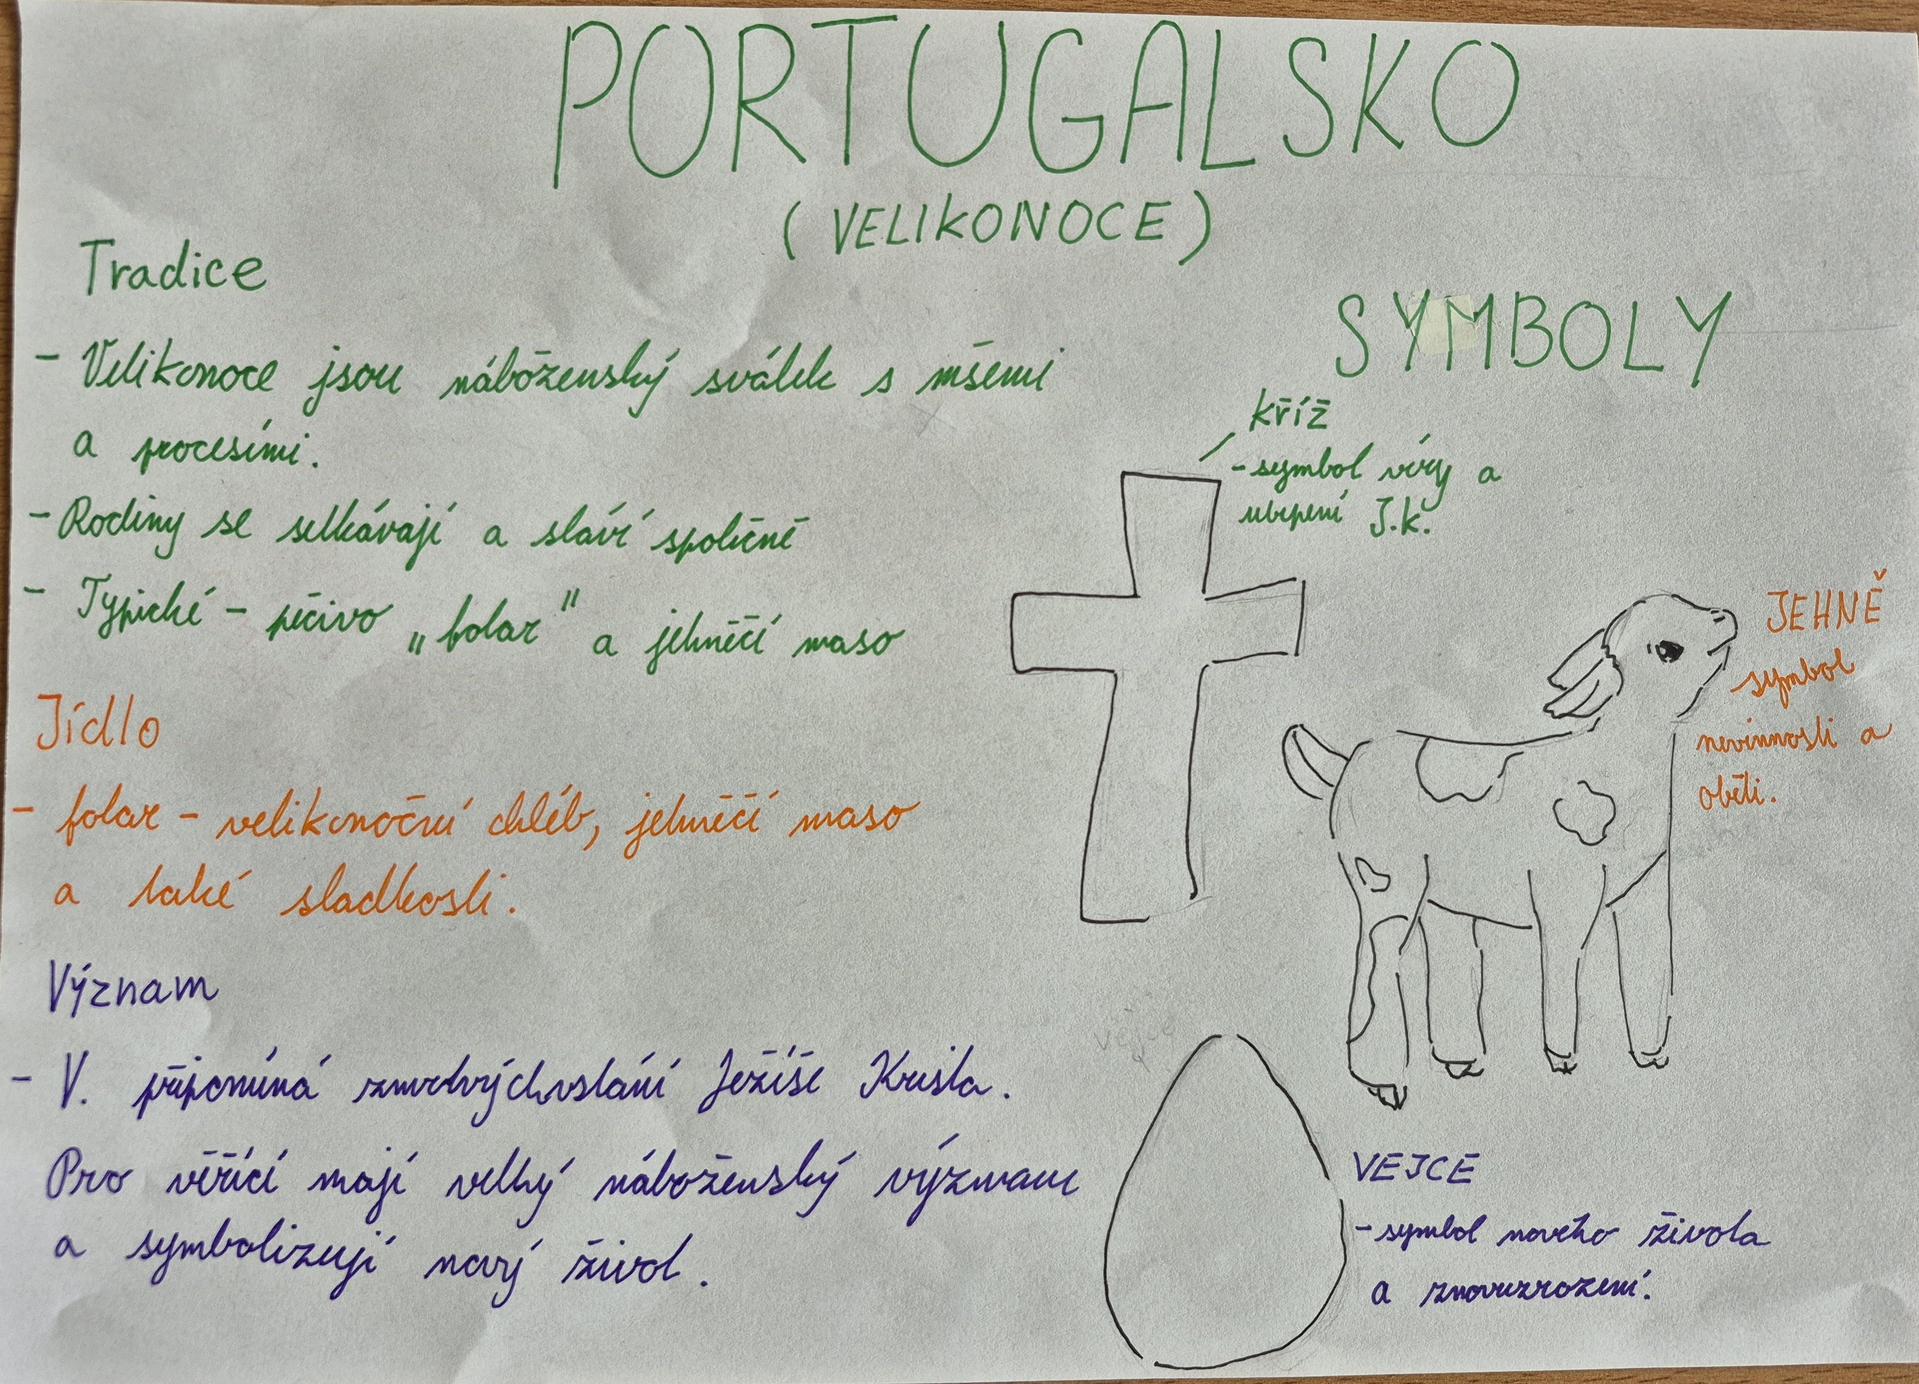 PORTUGALSKO
(VELIKONOCE)
Tradice
- Velikonoce jsou náboženský svátek s mšemi
a procesími.
- Rodiny se setkávají a slaví společně
- Typické - pečivo „folar" a jehněčí maso
Jídlo
- folar - velikonoční chléb, jehněčí maso
a také sladkosti.
Význam
- V. připomíná zmrtvýchvstání Ježíše Krista.
Pro věřící mají velký náboženský význam
a symbolizují nový život.
SYMBOLY
KŘÍŽ
- symbol víry a
utrpení J.k.
JEHNĚ
symbol
nevinnosti a
oběti.
vejce
VEJCE
- symbol nového života
a znovuzrození.